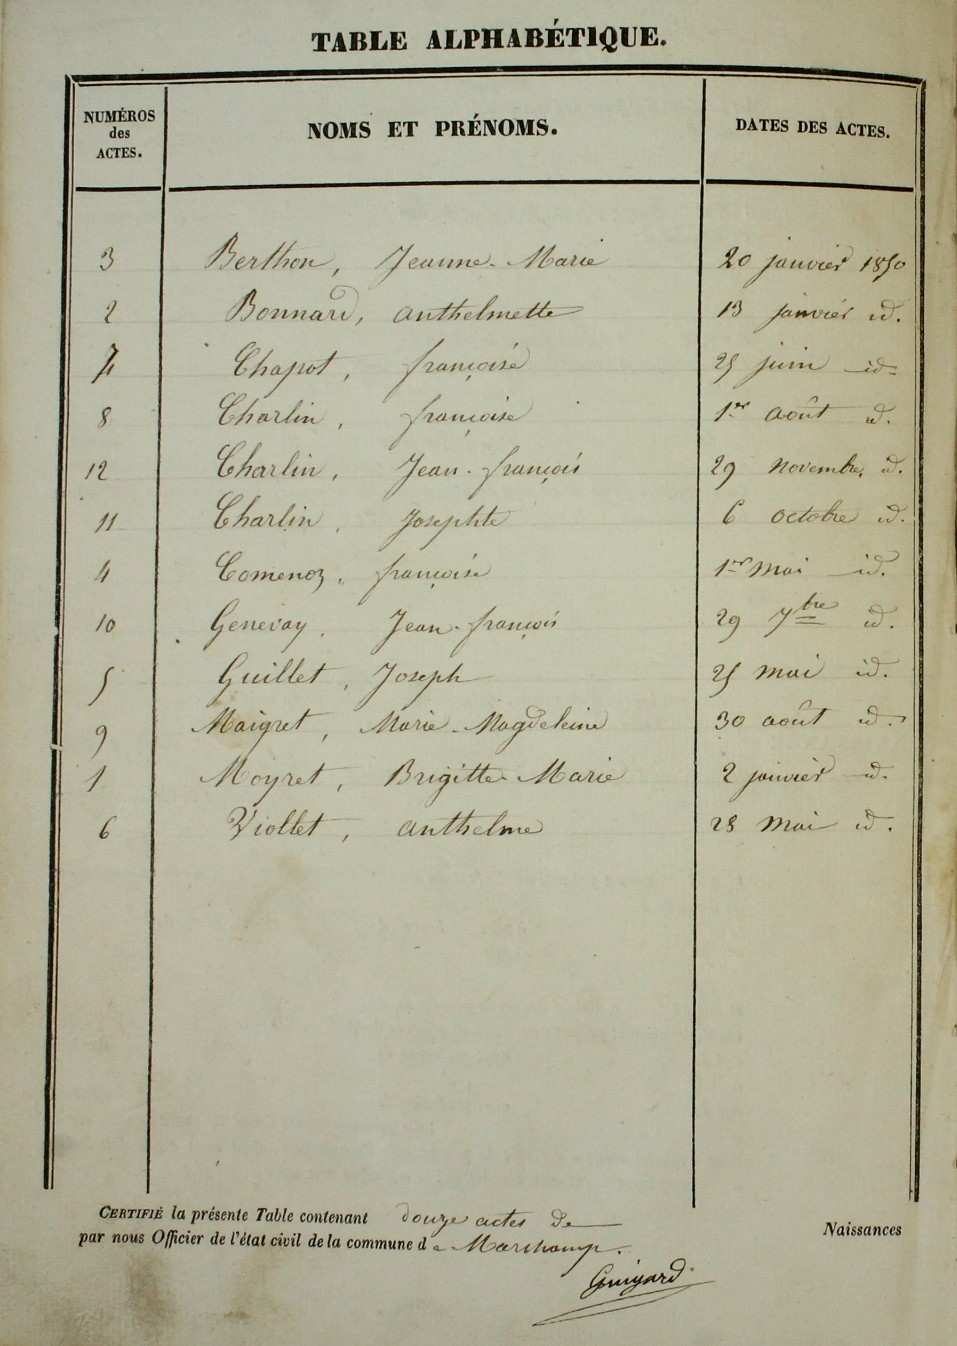 TABLE ALPHABÉTIQUE.
NUMÉROS des ACTES. NOMS ET PRÉNOMS. DATES DES ACTES.
3 Berthon, Jeanne-Marie 20 janvier 1850
2 Bonnard, anthelmette 13 janvier id.
7 Chapot, françoise 25 juin id.
8 Charlin, françoise 1er août id.
12 Charlin, Jean-françois 29 novembre, id.
11 Charlin, Josephte 6 octobre id.
4 Comenoz, françoise 1er mai id.
10 Genevay, Jean-françois 29 7bre id.
5 Guillet, Joseph 25 mai id.
9 Maigret, Marie-Magdeleine 30 août id.
1 Moyret, Brigitte-Marie 2 janvier id.
6 Viollet, anthelme 28 mai id.
CERTIFIÉ la présente Table contenant douze actes de Naissances
par nous Officier de l'état civil de la commune de Marchamp.
Guigard